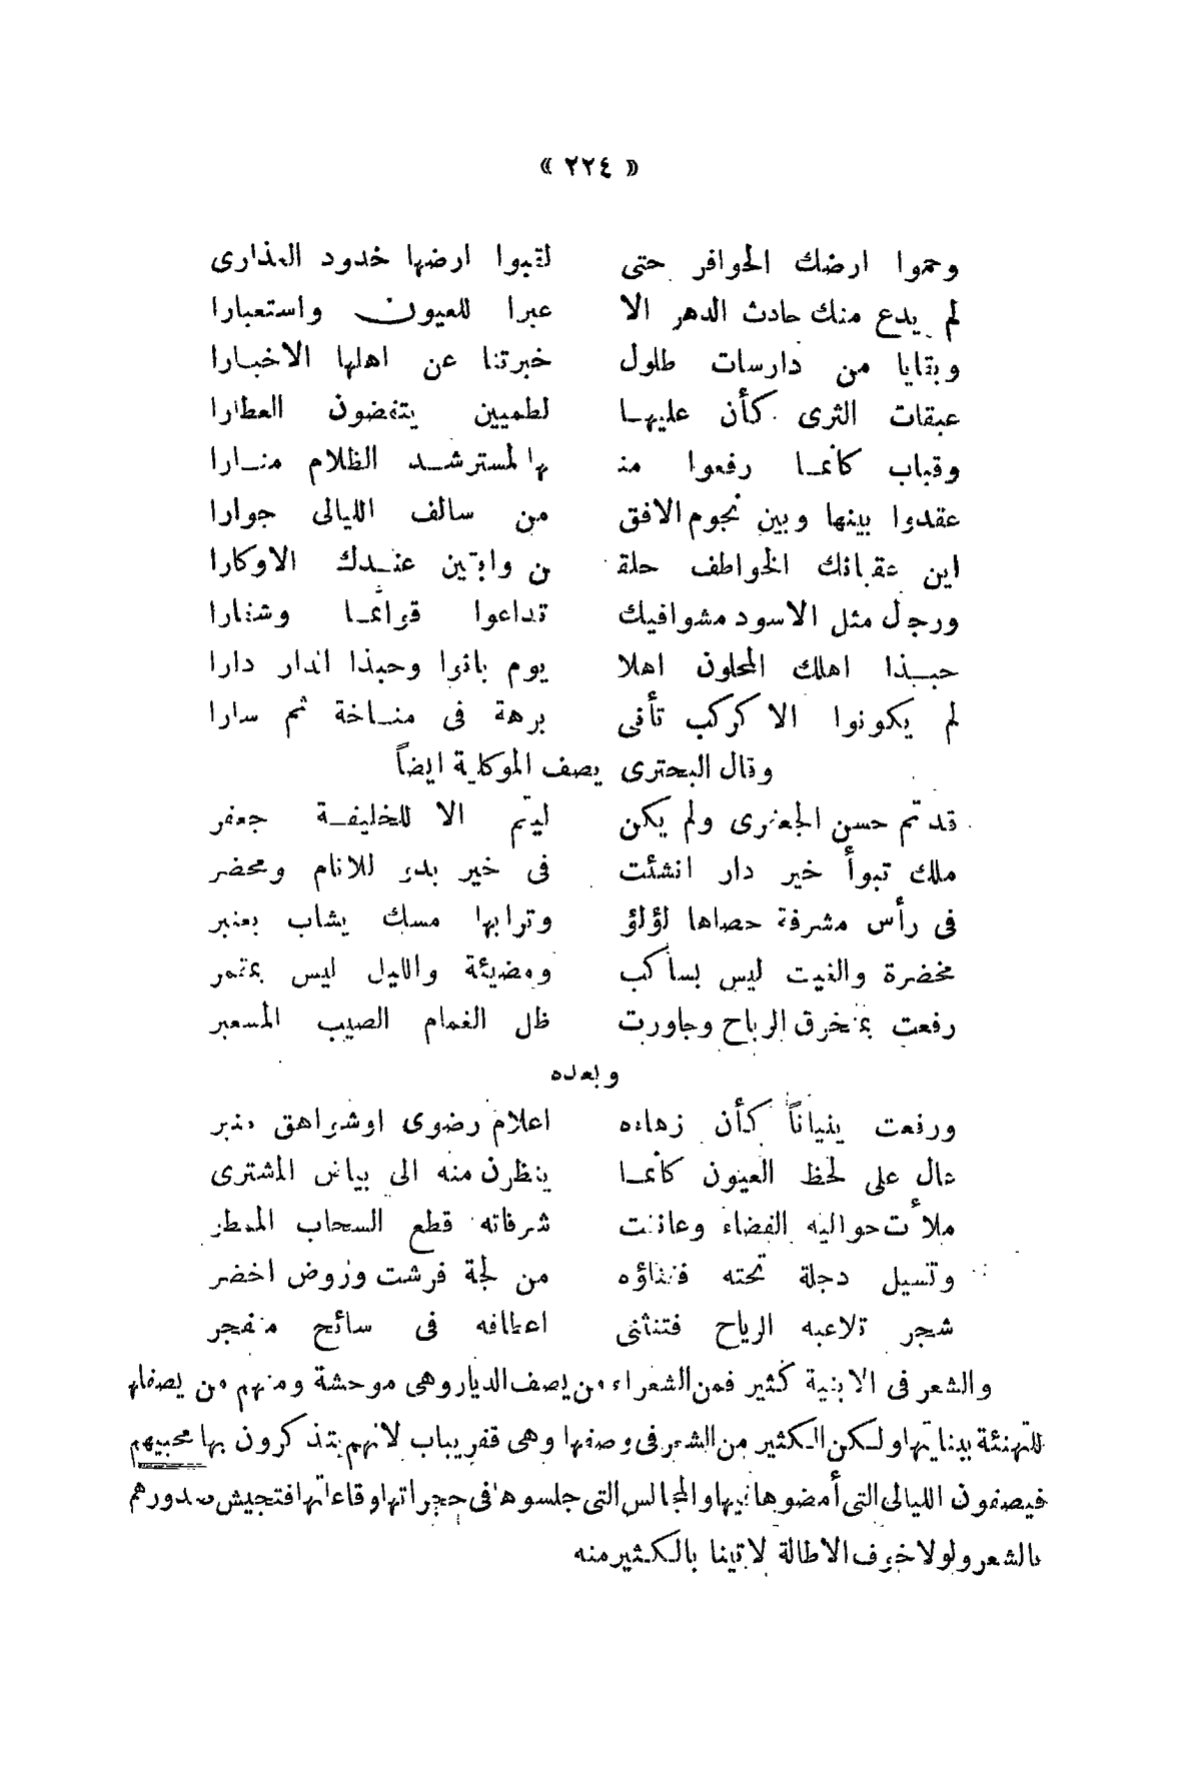 « ٢٢٤ »
وحموا ارضك الحوافر حتى لقبوا ارضها خدود العذارى
لم يدع منك حادث الدهر الا عبرا للعيون واستعبارا
وبقايا من دارسات طلول خبرتنا عن اهلها الاخبارا
عبقات الثرى كأن عليها لطميين ينفضون العطارا
وقباب كأنما رفعوا منـ ـها لمسترشد الظلام منارا
عقدوا بينها وبين نجوم الافق من سالف الليالى جوارا
اين عقبانك الخواطف حلقـ ـن وابقين عندك الاوكارا
ورجال مثل الاسود مشوا فيك تداعوا قوائما وشفارا
حبذا اهلك المحلون اهلا يوم بانوا وحبذا الدار دارا
لم يكونوا الا كركب تأنى برهة فى مناخة ثم سارا
وقال البحترى يصف المتوكلية ايضاً
قد تم حسن الجعفرى ولم يكن ليتم الا للخليفة جعفر
ملك تبوأ خير دار انشئت فى خير بدو للانام ومحضر
فى رأس مشرفة حصاها لؤلؤ وترابها مسك يشاب بعنبر
مخضرة والغيث ليس بساكب ومضيئة والليل ليس بمقمر
رفعت بمنخرق الرياح وجاورت ظل الغمام الصيب المسعبر
وبعده
ورفعت بنياناً كأن زهاءه اعلام رضوى او شواهق منبر
عال على لحظ العيون كأنما ينظرن منه الى بياض المشترى
ملأت حواليه الفضاء وعانقت شرفاته قطع السحاب الممطر
وتسيل دجلة تحته ففناؤه من لجة فرشت وروض اخضر
شجر تلاعبه الرياح فتنثنى اعطافه فى سائح متفجر
والشعر فى الابنية كثير فمن الشعراء من يصف الديار وهى موحشة ومنهم من يصفها
للتهنئة ببنايتها ولكن الكثير من الشعر فى وصفها وهى قفر يباب لانهم يتذكرون بها محبيهم
فيصفون الليالى التى أمضوها فيها والمجالس التى جلسوها فى حجراتها وقاعاتها فتجيش صدورهم
بالشعر ولولا خوف الاطالة لاتينا بالكثير منه